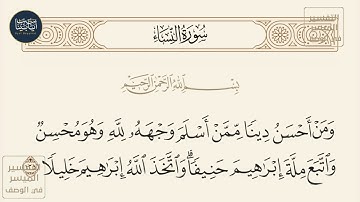 سُورَةُ النِّسَاءِ
التفسير الميسر في الوصف
بِسْمِ اللَّهِ الرَّحْمَٰنِ الرَّحِيمِ
وَمَنْ أَحْسَنُ دِينًا مِّمَّنْ أَسْلَمَ وَجْهَهُ لِلَّهِ وَهُوَ مُحْسِنٌ
وَاتَّبَعَ مِلَّةَ إِبْرَاهِيمَ حَنِيفًا ۗ وَاتَّخَذَ اللَّهُ إِبْرَاهِيمَ خَلِيلًا
التفسير الميسر في الوصف